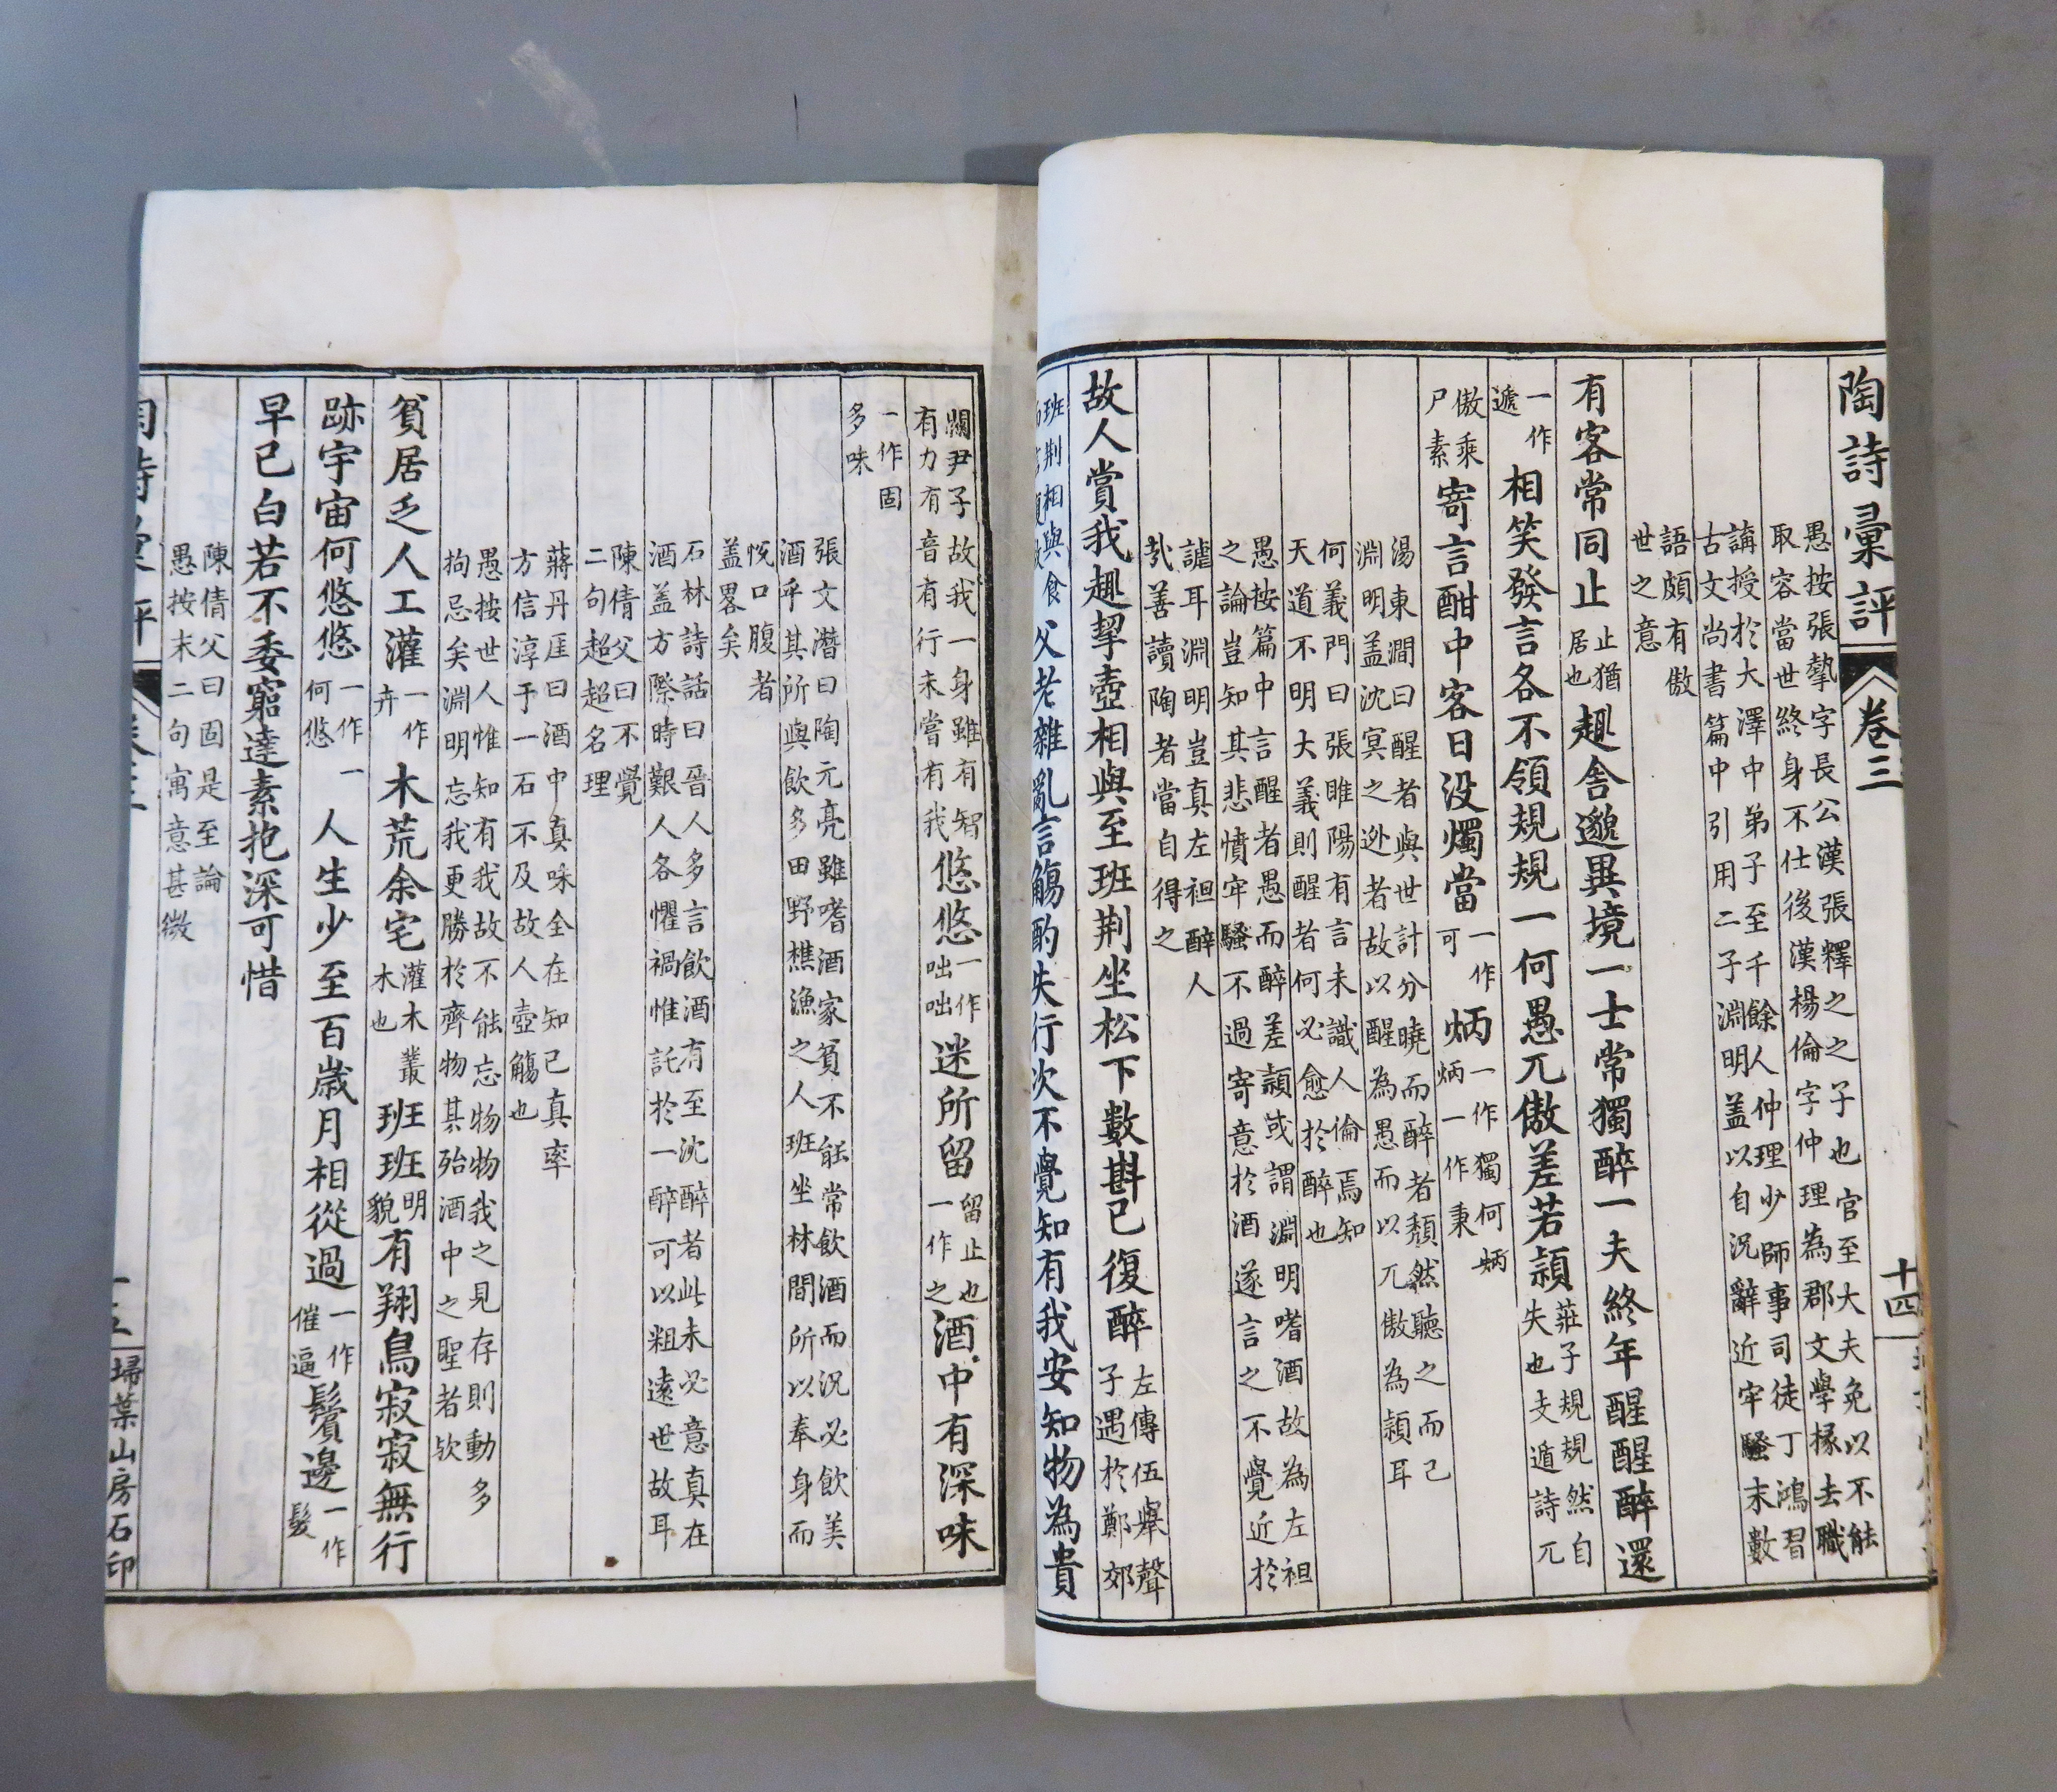 陶詩彚評 卷三 十四
愚按張摯字長公漢張釋之之子也官至大夫免以不能
取容當世終身不仕後漢楊倫字仲理為郡文學掾去職
講授於大澤中弟子至千餘人仲理少師事司徒丁鴻習
古文尚書篇中引用二子淵明蓋以自況辭近牢騷末數
語頗有傲
世之意
有客常同止止猶居也趣舍邈異境一士常獨醉一夫終年醒醒醉還
一作遞相笑發言各不領規規一何愚兀傲差若穎莊子規規然自失也支遁詩兀
傲乘尸素寄言酣中客日没燭當一作可炳一作獨何炳炳一作秉
湯東澗曰醒者與世計分曉而醉者頹然聽之而已
淵明蓋沈冥之逃者故以醒為愚而以兀傲為穎耳
何義門曰張睢陽有言未識人倫焉知
天道不明大義則醒者何必愈於醉也
愚按篇中言醒者愚而醉差穎或謂淵明嗜酒故為左袒
之論豈知其悲憤牢騷不過寄意於酒遂言之不覺近於
謔耳淵明豈真左袒醉人
哉善讀陶者當自得之
故人賞我趣挈壺相與至班荊坐松下數斟已復醉左傳伍舉聲子遇於鄭郊
班荊相與食父老雜亂言觴酌失行次不覺知有我安知物為貴
關尹子故我一身雖有智有力有音有行未嘗有我悠悠一作咄咄迷所留留止也一作之酒中有深味
一作固多味
張文潛曰陶元亮雖嗜酒家貧不能常飲酒而況必飲美
酒乎其所與飲多田野樵漁之人班坐林間所以奉身而
悅口腹者
蓋畧矣
石林詩話曰晉人多言飲酒有至沈醉者此未必意真在
酒蓋方際時艱人各懼禍惟託於一醉可以粗遠世故耳
陳倩父曰不覺
二句超超名理
蔣丹厓曰酒中真味全在知己真率
方信淳于一石不及故人壺觴也
愚按世人惟知有我故不能忘物物我之見存則動多
拘忌矣淵明忘我更勝於齊物其殆酒中之聖者歟
貧居乏人工灌一作卉木荒余宅灌木叢木也班班明貌有翔鳥寂寂無行
跡宇宙何悠悠一作一何悠人生少至百歲月相從過一作催逼鬢邊一作髮
早已白若不委窮達素抱深可惜
陳倩父曰固是至論
愚按末二句寓意甚微
掃葉山房石印